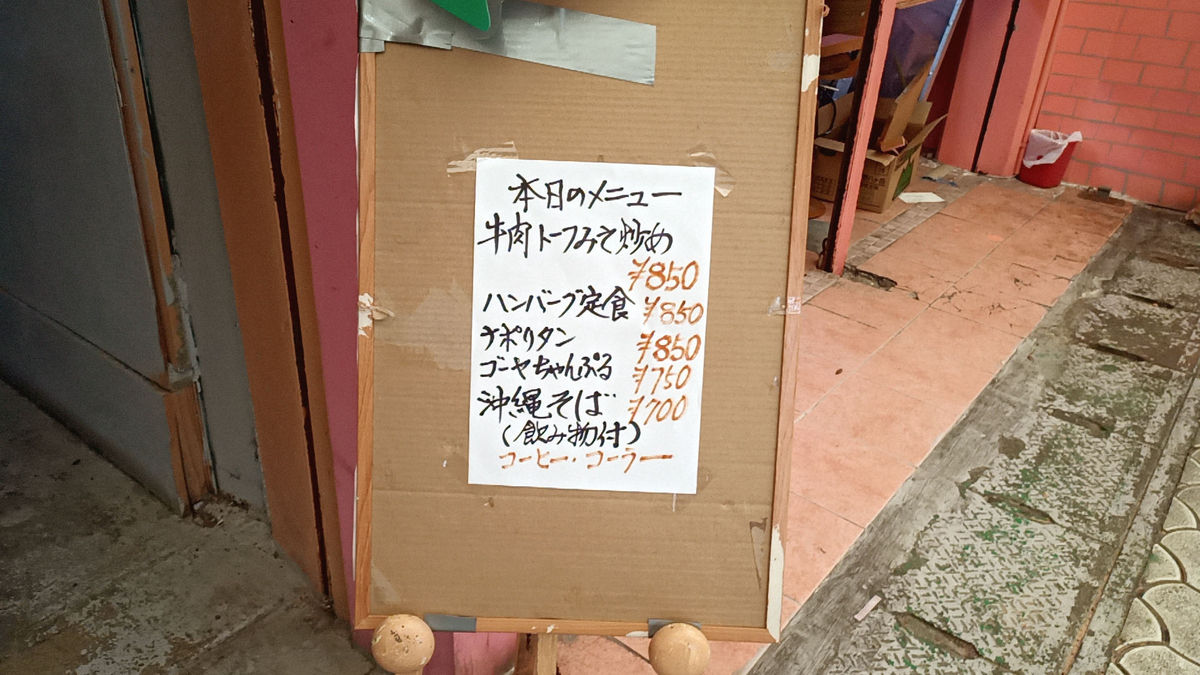 本日のメニュー
牛肉トーフみそ炒め
¥850
ハンバーグ定食 ¥850
ナポリタン ¥850
ゴーヤちゃんぷる ¥750
沖縄そば ¥700
(飲み物付)
コーヒー・コーラー